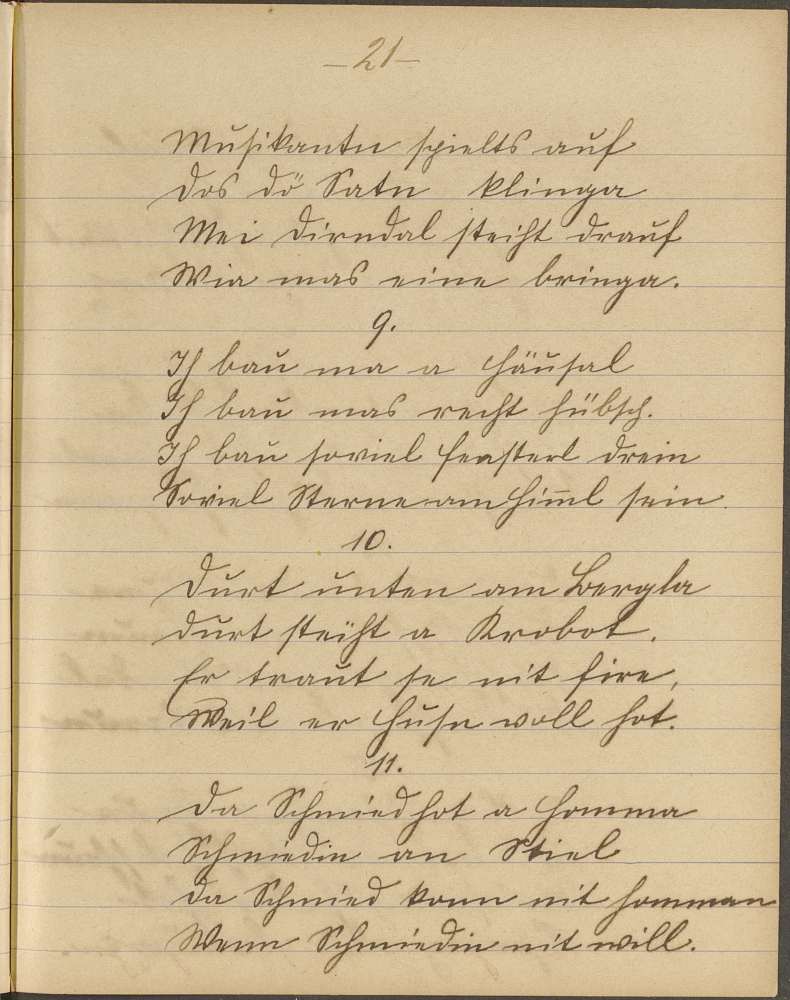 –21–
Musikantn spielts auf
Dos dö Satn klinga
Mei Dirndal steiht drauf
Wia mas eine bringa.
9.
Ih bau ma a Häusal
Ih bau mas recht hübsch.
Ih bau soviel Fensterl drein
Soviel Sterne am Himml sein
10.
Durt unten am Bergla
durt steiht a Krobot.
Er traut se nit fire,
Weil er Husn voll hot.
11.
Da Schmied hot a Homma
Schmiedin an Stiel
Da Schmied konn nit homman
Wenn Schmiedin nit will.